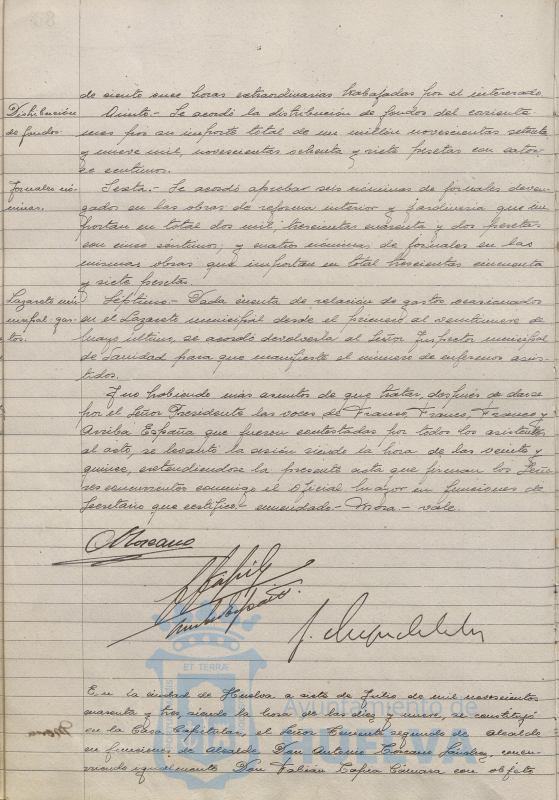 de ciento once horas extraordinarias trabajadas por el interesado
Distribución
de fondos.
Quinto.- Se acordó la distribución de fondos del corriente
mes por su importe total de un millón novecientas setenta
y nueve mil, novecientas ochenta y siete pesetas con cator-
ce centimos.
Jornales nó-
minas.
Sexta.- Se acordó aprobar seis nóminas de jornales deven-
gados en las obras de reforma interior y jardineria que im-
portan en total dos mil, trescientas cuarenta y dos pesetas
con cinco céntimos, y cuatro nóminas de jornales en las
mismas obras que importan en total trescientas cincuenta
y siete pesetas.
Lazareto mu-
nicipal gas-
tos.
Séptimo.- Dada cuenta de relación de gastos ocasionados
en el Lazareto municipal desde el primero al veintinueve de
mayo ultimo, se acordó devolverla al Señor Inspector municipal
de Sanidad para que manifieste el número de enfermos asis-
tidos.
Y no habiendo más asuntos de que tratar, después de darse
por el Señor Presidente las voces de Franco, Franco, Franco y
Arriba España que fueron contestadas por todos los asistentes
al acto, se levantó la sesión siendo la hora de las veinte y
quince, extendiéndose la presente acta que firman los Seño-
res concurrentes conmigo el Oficial Mayor en funciones de
Secretario que certifico.- enmendado - Mora - vale
ET TERRÆ
En la ciudad de Huelva a siete de Julio de mil novecientos
cuarenta y tres, siendo la hora de las diez y nueve, se constituyó
en la Casa Capitular, el Señor Teniente segundo de alcalde
en funciones de Alcalde Don Antonio Toscano Sánchez, concu-
rriendo igualmente Don Fabián Tapia Cámara con objeto
Ayuntamiento de
HUELVA